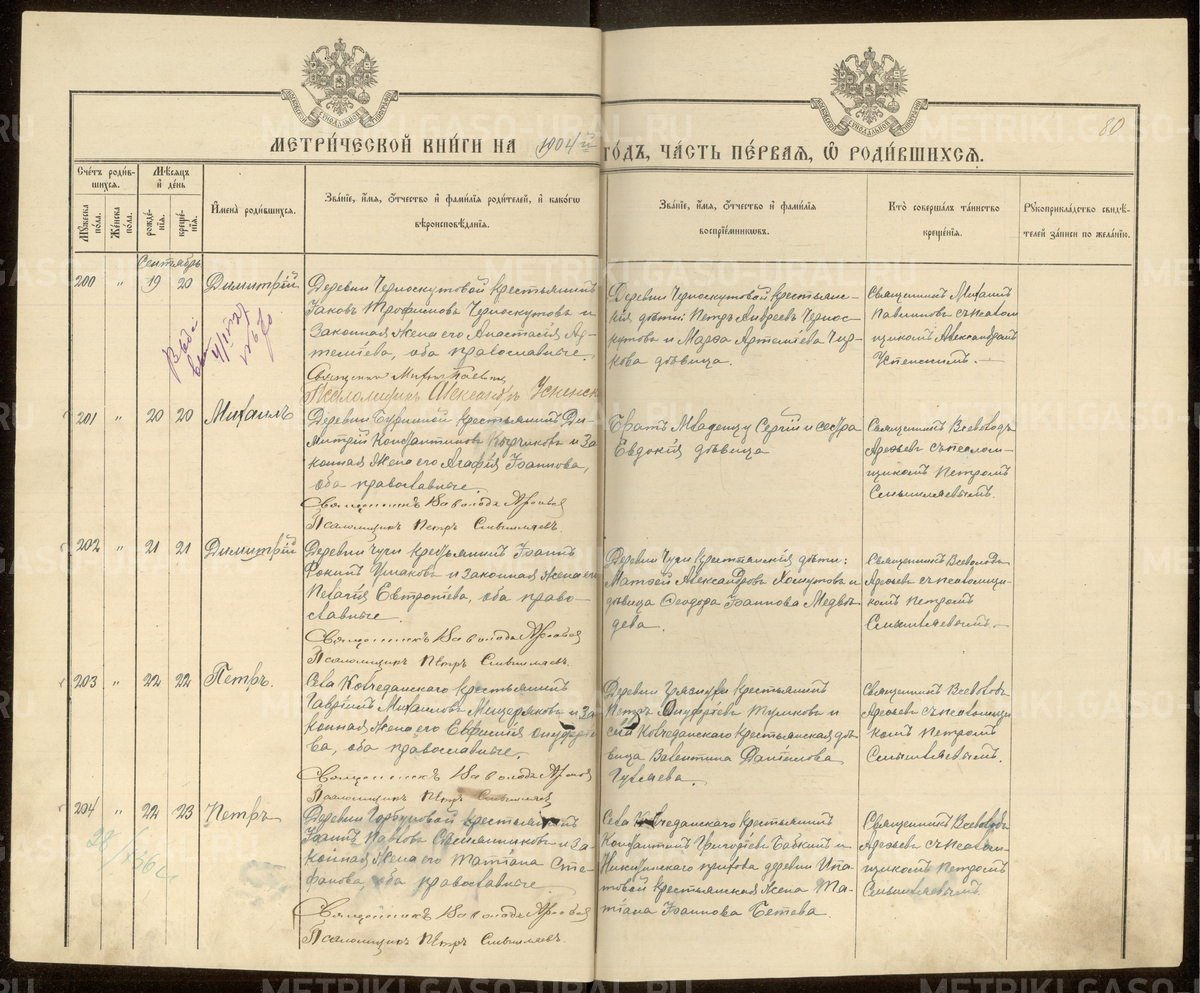 МЕТРИ́ЧЕСКОЙ КНИ́ГИ НА 1904й
ГО́ДЪ, ЧА́СТЬ ПЕ́РВАЯ, Ѡ РОДИ́ВШИХСЯ.
80
Сче́тъ роди́в-
шихся.
Му́жеска по́ла.
Же́нска по́ла.
Мѣ́сяцъ
и де́нь
рожде́-
нія.
креще́-
нія.
Имена̀ роди́вшихся.
Зва́ніе, и́мя, о́тчество и фами́лія роди́телей, и како́гѡ
вѣроисповѣ́данія.
Зва́ніе, и́мя, о́тчество и фами́лія
воспріе́мниковъ.
Кто̀ соверша́лъ та́инство
креще́нія.
Рꙋкоприкла́дство свидѣ́-
телей за́писи по жела́нію.
Сентябрь
200 " 19 20 Димитрій
Деревни Черноскутовой крестьянинъ
Іаковъ Трофимовъ Черноскутовъ и
законная жена его Анастасія Ар-
темиева, оба православные.
Священникъ Михаилъ
Псаломщикъ Александръ Успенск
Деревни Черноскутовой крестьян-
скія дѣти: Петръ Андреевъ Чернос-
кутовъ и Марѳа Артеміева Чир-
кова дѣвица.
Священникъ Михаилъ
съ псалом
щикомъ Александромъ
Успенскимъ.
201 " 20 20 Михаилъ
Деревни крестьянинъ Ди-
митрій Константиновъ и за
конная жена его Агафія Іоаннова,
оба православные.
Священникъ Всеволодъ
Псаломщикъ Петръ Смышляевъ.
Братъ младенцу Сергій и сестра
Евдокія дѣвица
Священникъ Всеволодъ
Арефьевъ съ псалом-
щикомъ Петромъ
Смышляевымъ.
202 " 21 21 Димитрій
Деревни Чуги крестьянинъ Іоаннъ
Фокинъ Ушаковъ и законная жена его
Пелагія Евтропіева, оба право-
славные.
Священникъ Всеволодъ
Псаломщикъ Петръ Смышляевъ.
Деревни Чуги крестьянскія дѣти:
Матѳей Александровъ Хомутовъ и
дѣвица Ѳеодора Іоаннова Медвѣ
дева.
Священникъ Всеволодъ
Арефьевъ съ псаломщи-
комъ Петромъ
Смышляевымъ.
203 " 22 22 Петръ.
Села Колчеданскаго крестьянинъ
Гавріилъ Михаиловъ Мещеряковъ и за
конная жена его Евфимія Онуфріе
ва, оба православные.
Священникъ Всеволодъ
Псаломщикъ Петръ Смышляевъ
Деревни крестьянинъ
Петръ Онуфріевъ и
села Колчеданскаго крестьянская дѣ-
вица Валентина Даніилова
Гуляева.
Священникъ Всеволодъ
Арефьевъ съ псаломщи
комъ Петромъ
Смышляевымъ.
204 " 22 23 Петръ
Деревни Горбуновой крестьянинъ
Іоаннъ Павловъ и за-
конная жена его Татіана Сте-
фанова, оба православные.
Священникъ Всеволодъ
Псаломщикъ Петръ Смышляевъ.
Села Колчеданскаго крестьянинъ
Константинъ Григоріевъ Бабкинъ и
прихода деревни Ипа-
товой крестьянская жена Та-
тіана Іоаннова Бетева.
Священникъ Всеволодъ
Арефьевъ съ псалом
щикомъ Петромъ
Смышляевымъ.
METRIKI.GASO-URAL.RU